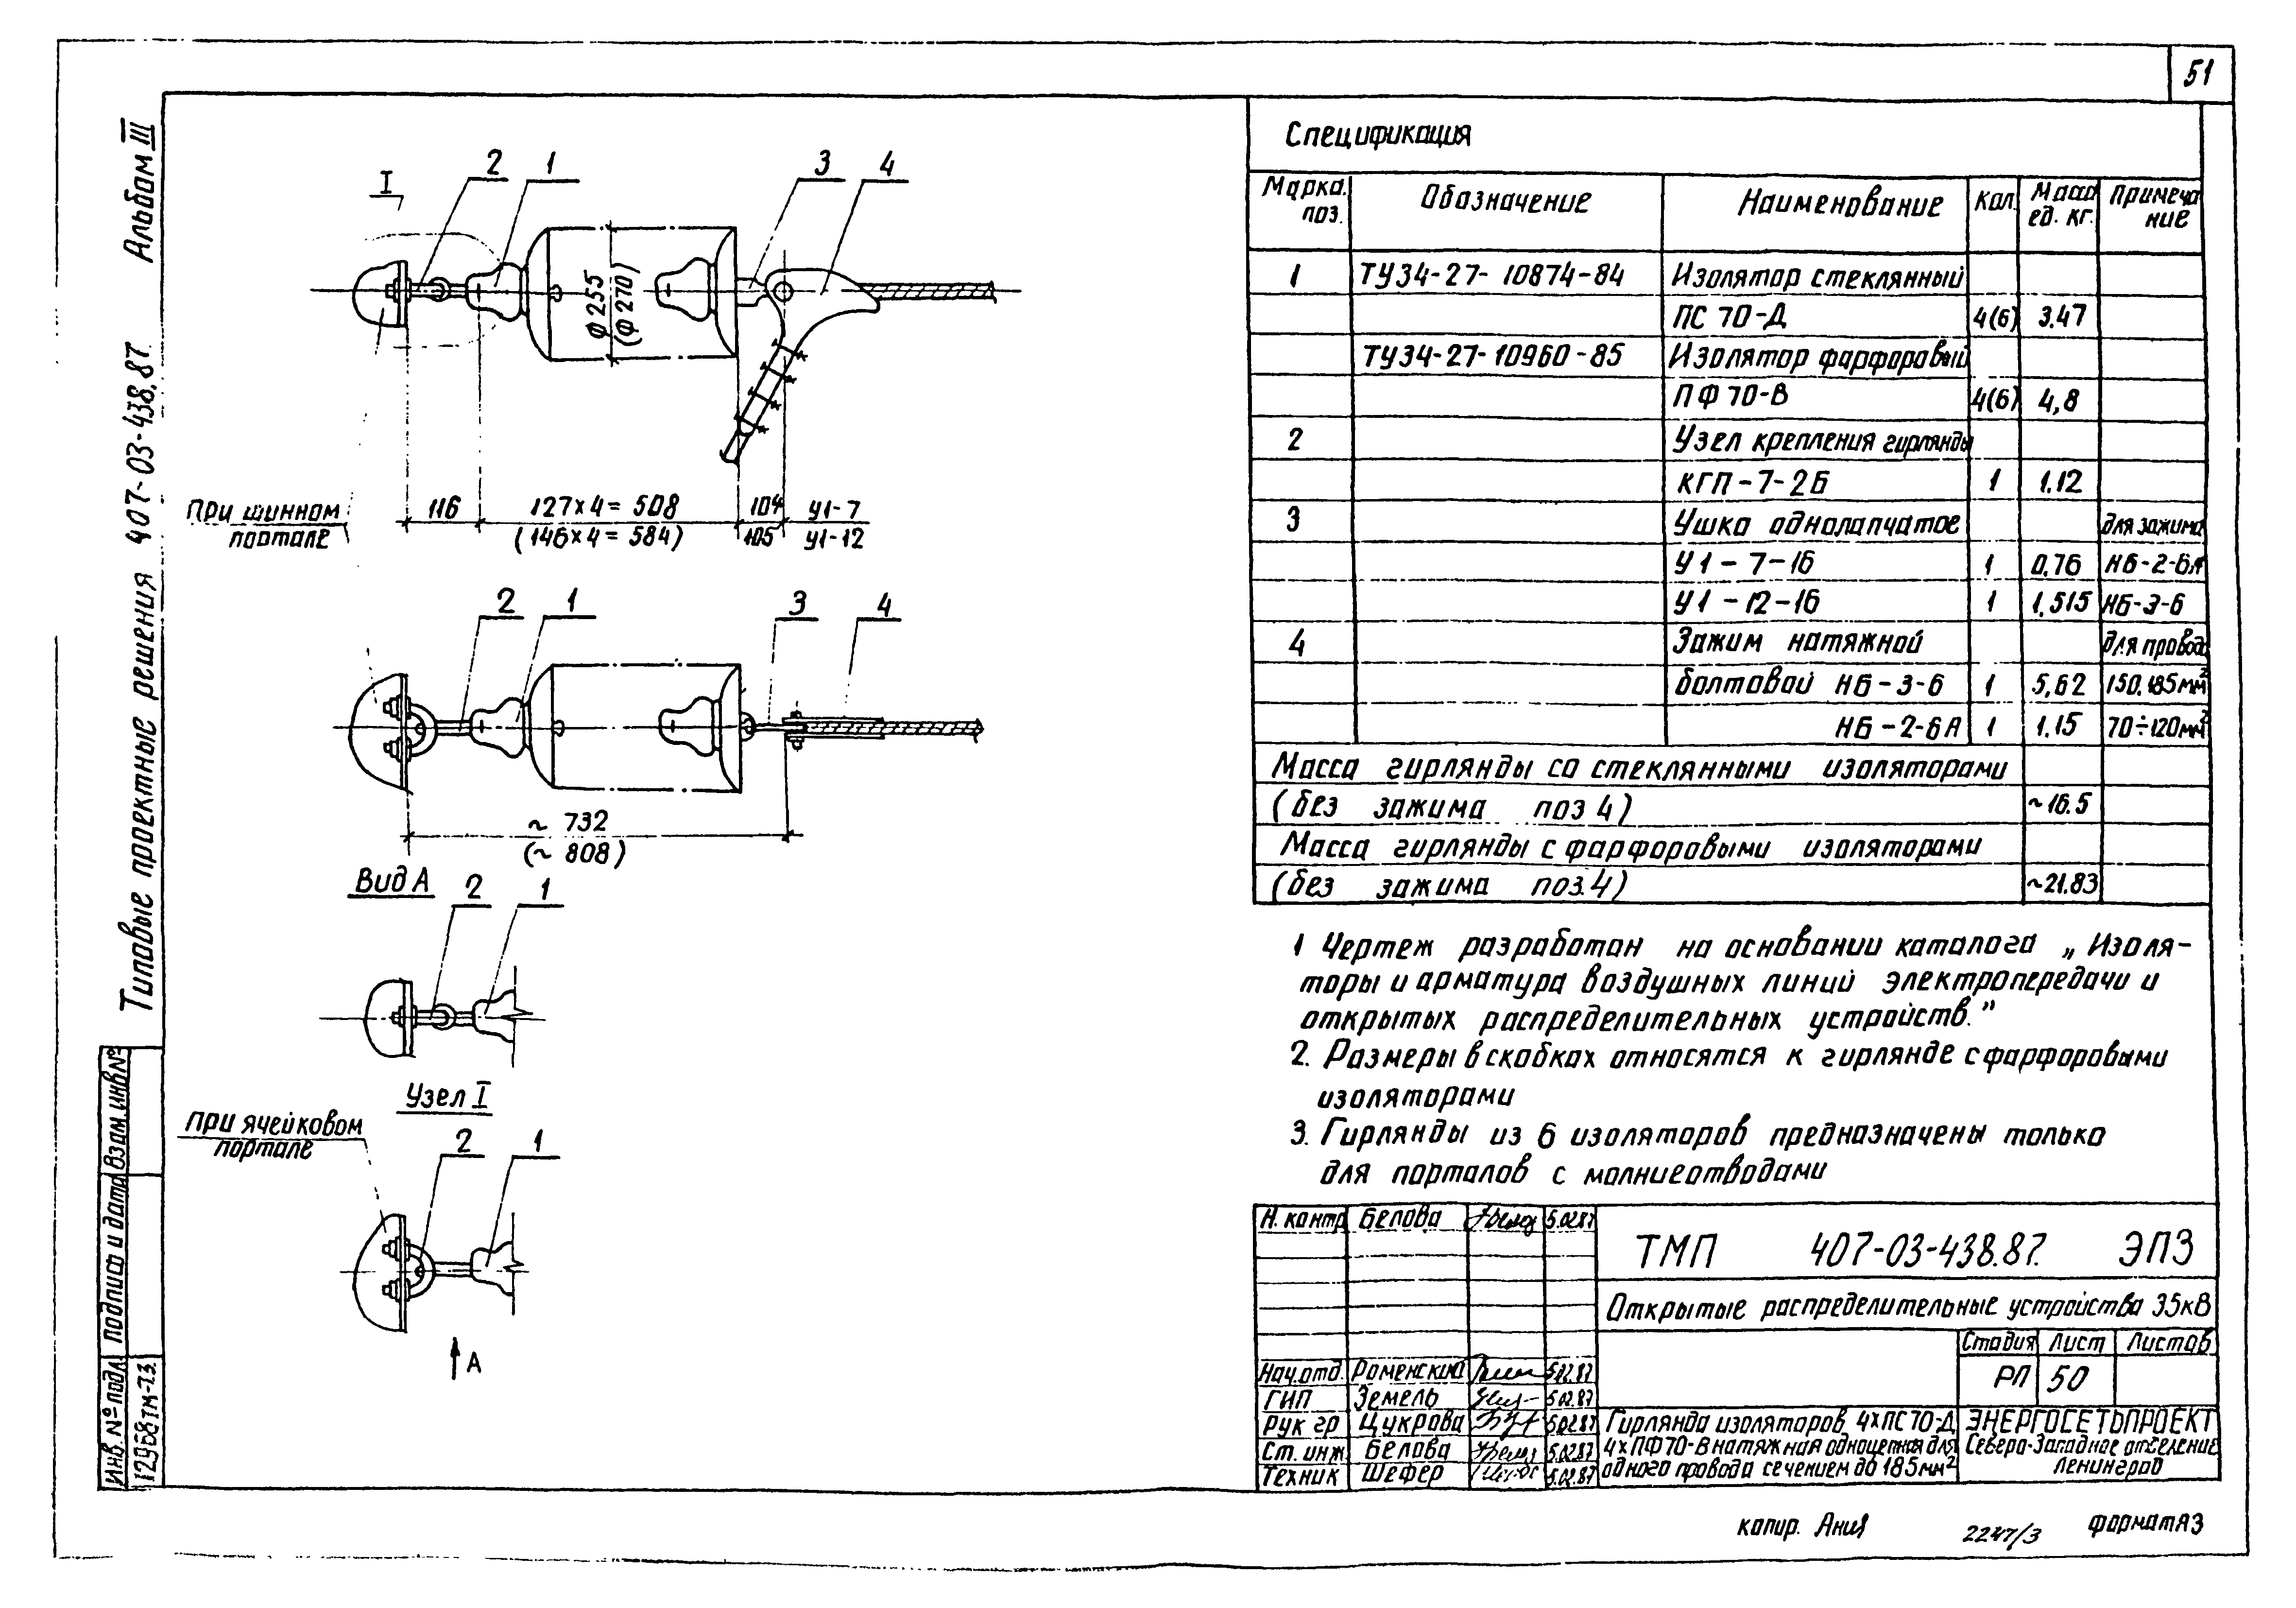 51
Альбом III
407-03-438.87
Типовые проектные решения
I
2
1
3
4
ф 255
(ф 270)
При шинном
портале
116
127×4=508
(146×4=584)
104
105
У1-7
У1-12
2
1
3
4
~ 732
(~ 808)
Вид А
2
1
Узел I
при ячейковом
портале
2
1
А
Спецификация
Марка. поз. Обозначение Наименование Кол. Масса ед. кг. Примечание
1 ТУ34-27-10874-84 Изолятор стеклянный
ПС 70-Д 4(6) 3.47
ТУ34-27-10960-85 Изолятор фарфоровый
ПФ 70-В 4(6) 4,8
2 Узел крепления гирлянды
КГП-7-2Б 1 1.12
3 Ушко однолапчатое для зажима
У1-7-16 1 0,76 НБ-2-6А
У1-12-16 1 1,515 НБ-3-6
4 Зажим натяжной для провода
болтовой НБ-3-6 1 5,62 150,185мм²
НБ-2-6А 1 1.15 70÷120мм²
Масса гирлянды со стеклянными изоляторами
(без зажима поз 4) ~16.5
Масса гирлянды с фарфоровыми изоляторами
(без зажима поз.4) ~21.83
1 Чертеж разработан на основании каталога „Изоля-
торы и арматура воздушных линий электропередачи и
открытых распределительных устройств."
2. Размеры в скобках относятся к гирлянде с фарфоровыми
изоляторами
3. Гирлянды из 6 изоляторов предназначены только
для порталов с молниеотводами
Н. контр Белова 5.02.87
ТМП 407-03-438.87. ЭП3
Открытые распределительные устройства 35кВ
Стадия Лист Листов
РП 50
Нач.отд. Роменский 5.02.87
ГИП Земель 5.02.87
Рук гр Цукрова 5.02.87
Ст. инж. Белова 5.02.87
Техник Шефер 5.02.87
Гирлянда изоляторов 4×ПС70-Д,
4×ПФ70-В натяжная одноцепная для
одного провода сечением до 185мм²
ЭНЕРГОСЕТЬПРОЕКТ
Северо-Западное отделение
Ленинград
Взам.инв№
Подпись и дата
Инв.№подл.
12968тм-т3
копир. Ания
2247/3
формат А3